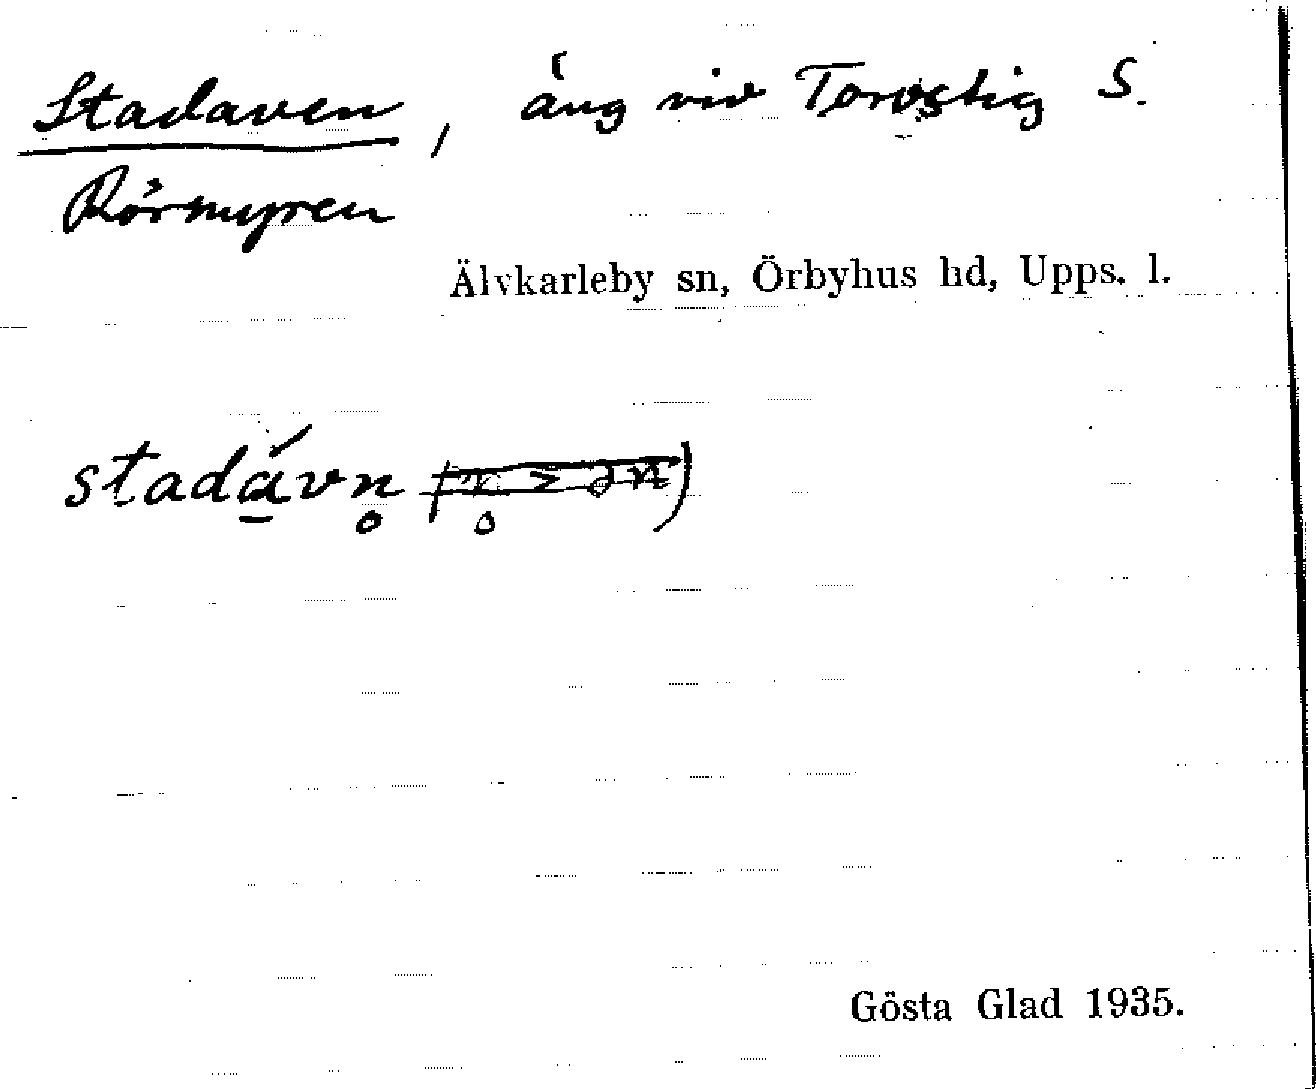 Stadaven, äng vid Torvstig S.
Rörmyren
Älvkarleby sn, Örbyhus hd, Upps. l.
stadá̱vn̥
Gösta Glad 1935.